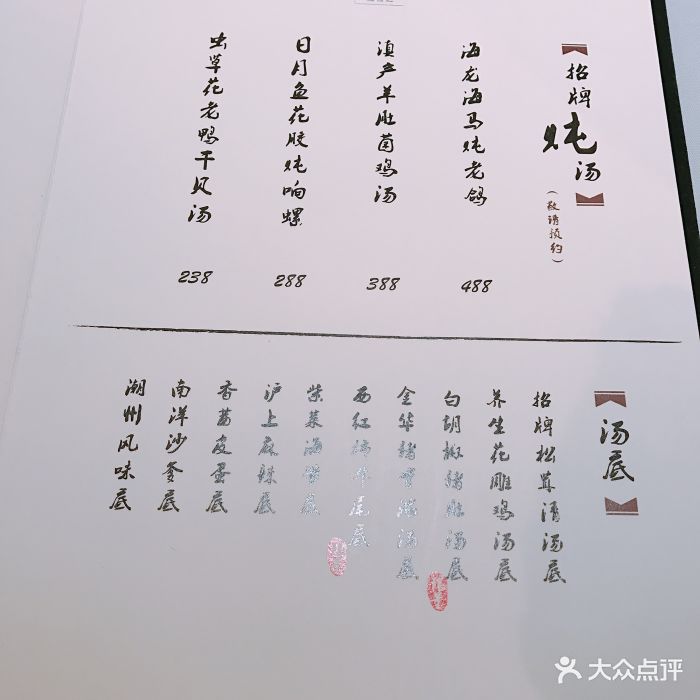 招牌炖汤
（敬请预约）
海龙海马炖老鸽
488
滇产羊肚菌鸡汤
388
日月鱼花胶炖响螺
288
虫草花老鸭干贝汤
238
汤底
招牌松茸清汤底
养生花雕鸡汤底
白胡椒猪肚汤底
金华猪骨浓汤底
西红柿牛尾底
紫菜海带底
沪上麻辣底
香茜皮蛋底
南洋沙爹底
潮州风味底
大众点评